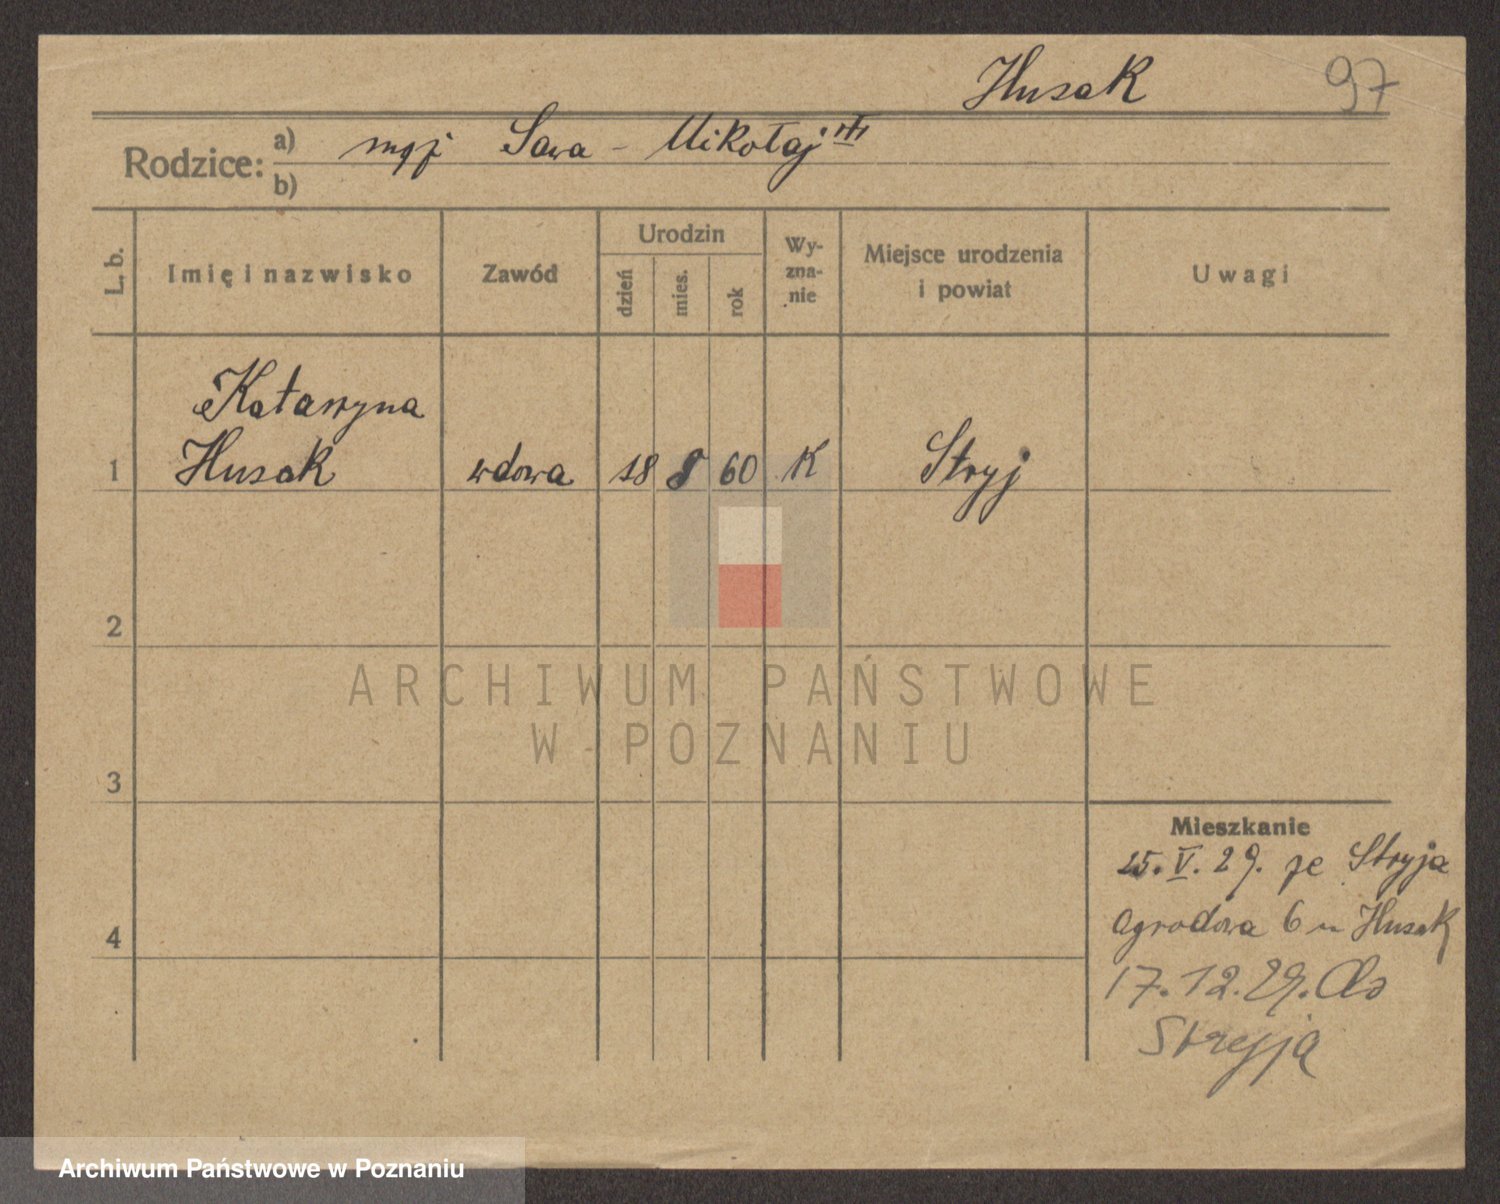 Husak 97
Rodzice: a) mąż Sawa - Mikołaj
b)
L. b. Imię i nazwisko Zawód Urodzin dzień mies. rok Wyznanie Miejsce urodzenia i powiat Uwagi
Katarzyna
1 Husak wdowa 18 8 60 K Stryj
2
3
4
Mieszkanie
25. V. 29. ze Stryja
Ogrodowa 6 u Husak
17.12.29. do
Stryja
ARCHIWUM PAŃSTWOWE
W POZNANIU
Archiwum Państwowe w Poznaniu